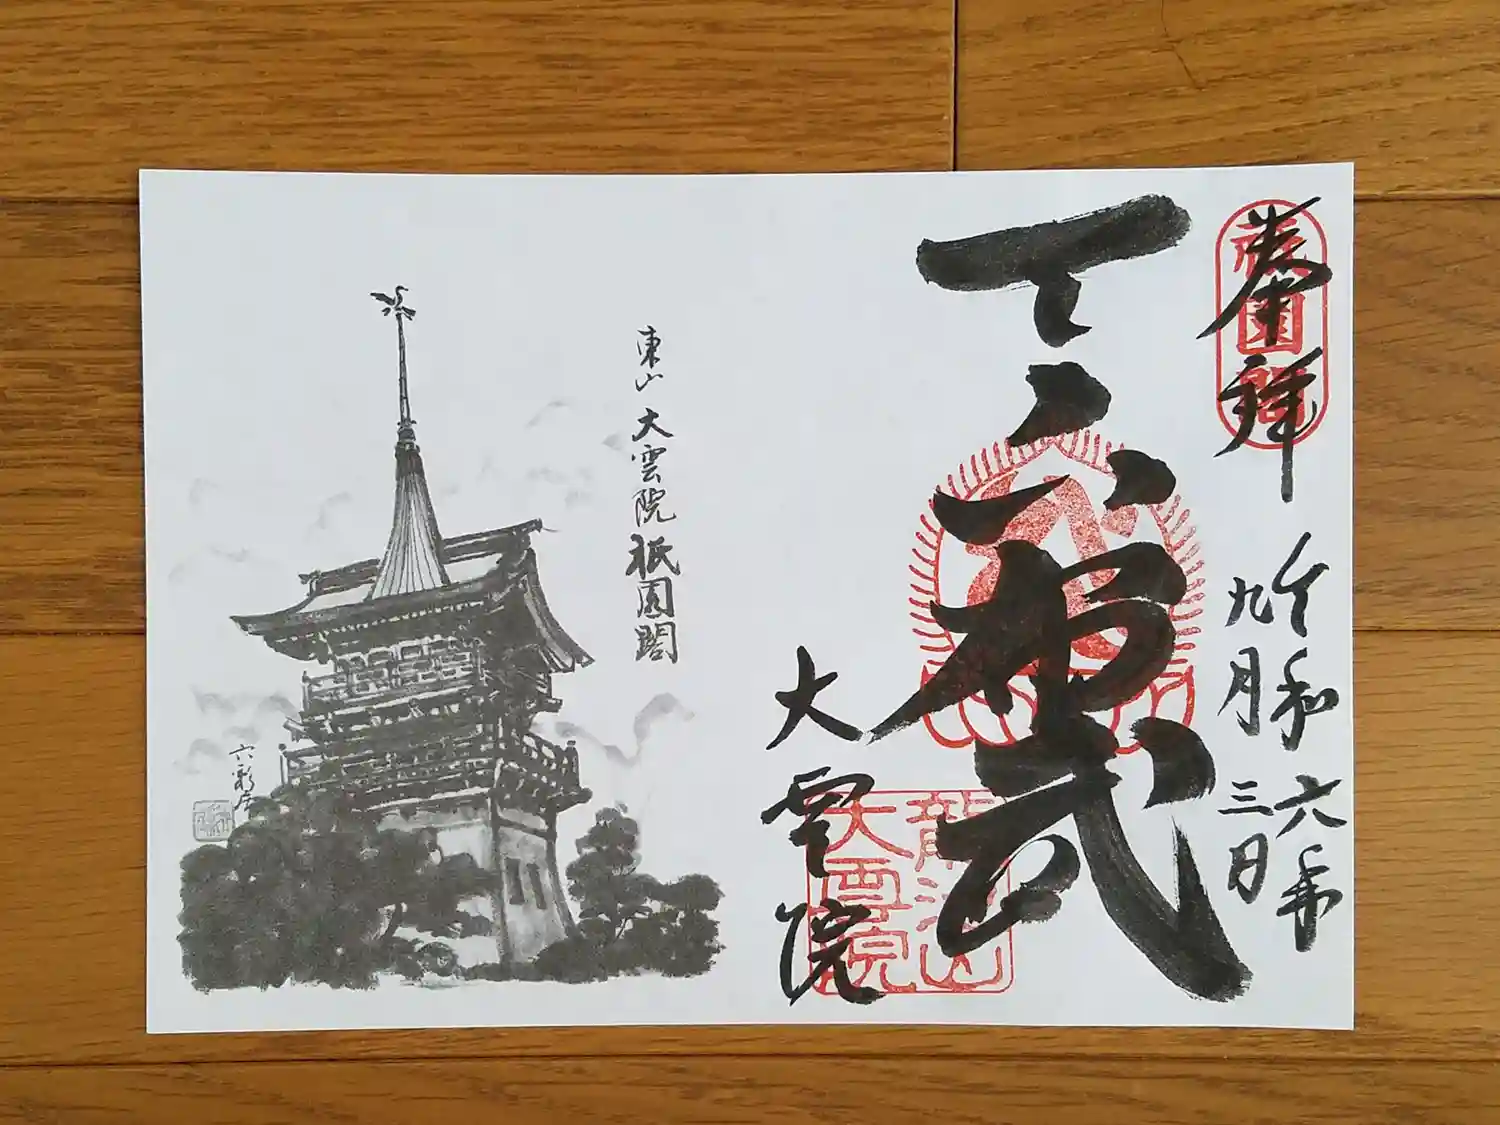 奉拝
祇園閣
令和六年
九月三日
天下布武
大雲院
龍池山
大雲院
東山 大雲院 祇園閣